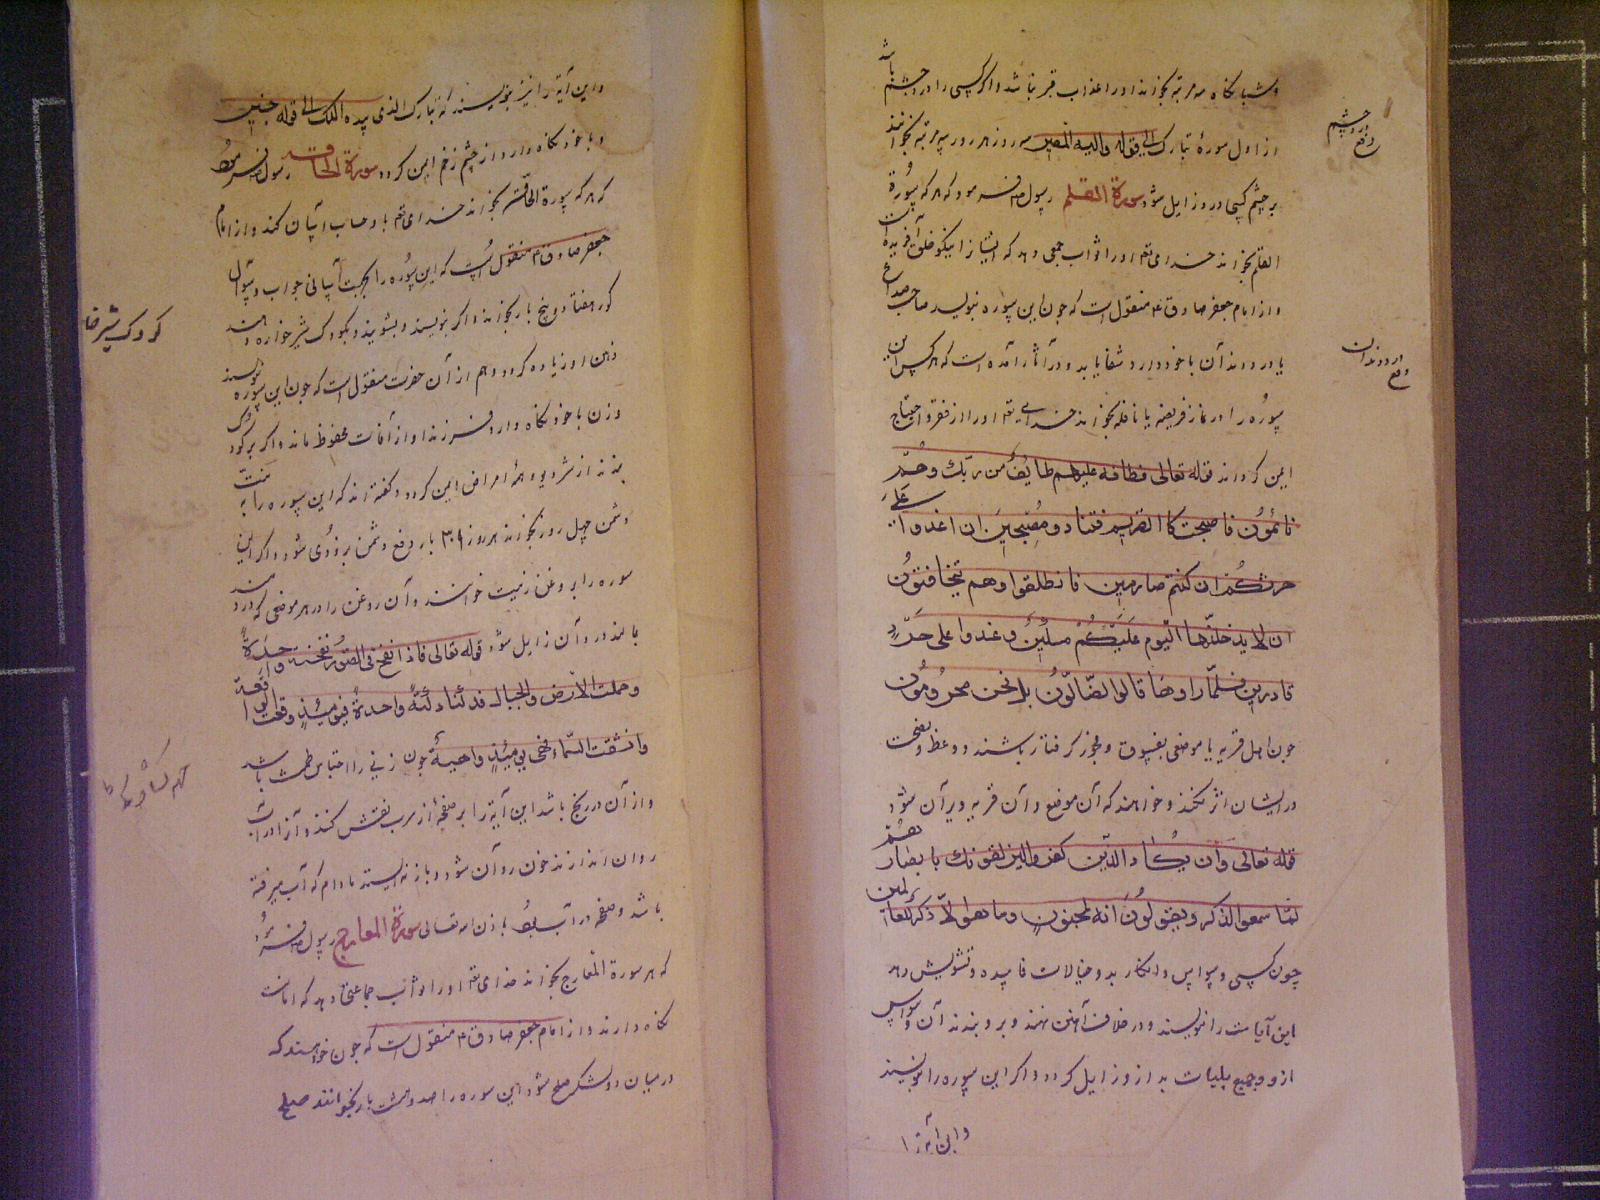 و شبانکاه سه مرتبه بخواند او را عذاب قبر نباشد و اکر کسی را درد چشم باشد
از اول سورهٔ تبارک الی قوله والیه المصیر سه روز هر روز سه مرتبه بخوانند
بر چشم کسی درد زایل شود سورة القلم رسول ص فرمود که هر که سورة
القلم بخواند خدای تع او را ثواب جمعی دهد که ایشانرا نیکو خلق آفریده است
و از امام جعفر صادق ع منقول است که چون این سوره بنویسد صاحب صداع
یا درد دندان با خود دارد شفا یابد و در آثار آمده است که هر کس این
سوره را در نماز فریضه یا نافله بخواند خدای تع او را از فقر و احتیاج
ایمن کرداند قوله تعالی فطاف علیهم طایف من ربک و هم
نائمون فاصبحت کالصریم فتنادوا مصبحین ان اغدوا علی
حرثکم ان کنتم صارمین فانطلقوا وهم یتخافتون
ان لا یدخلنها الیوم علیکم مسکین وغدوا علی حرد
قادرین فلما راوها قالوا انا لضالون بل نحن محرومون
چون اهل قریه یا موضعی بفسوق و فجور کرفتار باشند و وعظ و نصیحت
در ایشان اثر نکند و خواهند که آن موضع و آن قریه ویران شود
قوله تعالی وان یکاد الذین کفروا لیزلقونک بابصارهم
لما سمعوا الذکر ویقولون انه لمجنون وما هو الا ذکر للعالمین
چون کسی وسواس و افکار بد و خیالات فاسده و تشویش دهد
این آیات را نویسند و در غلاف آهنین نهند و برو بندند آن وسواس
ازو و جمیع بلیات بد ازو زایل کردد و اکر این سوره را نویسند
و این آیه را
دفع درد چشم
دفع درد دندان
و این آیه را نیز بنویسند که تبارک الذی بیده الملک الی قوله
و با خود نکاه دارد از چشم زخم ایمن کردد سورة الحاقه رسول ص فرمود
که هر که سورة الحاقه بخواند خدای تع با او حساب آسان کند و از امام
جعفر صادق ع منقول است که این سوره را بجهت آسانی جواب و سؤال
کور هفتاد و پنج بار بخوانند و اکر بنویسند و بشویند و بکودک شیر خواره دهند
ذهن او زیاده کردد و هم از آن حضرت منقول است که چون این سوره نویسند
و زن با خود نکاه دارد فرزند او از آفات محفوظ ماند و اکر بر کودک
بندند از شر دیو و همهٔ امراض ایمن کردد و کفته اند که این سوره را به نیت
دشمن چهل روز بخوانند هر روز بار دفع دشمن بزودی شود و اکر این
سوره را بر روغن زیت خوانند و آن روغن را در هر موضعی که درد
مالند درد آن زایل شود قوله تعالی فاذا نفخ فی الصور نفخة واحدة
وحملت الارض والجبال فدکتا دکة واحدة فیومئذ وقعت الواقعة
وانشقت السماء فهی یومئذ واهیة چون زنی را احتباس طمث باشد
و از آن در رنج باشد این آیة را بر صفحه از سرب نقش کنند و آنرا در آب
روان اندازند خون روان شود و باز نه ایستد مادام که آب میرفته
باشد و صفحه در آب بود باذن الله تعالی سورة المعارج رسول ص فرمود
که هر سورة المعارج بخواند خدای تع او را ثواب جماعتی دهد که امانت
نکاه دارند و از امام جعفر صادق ع منقول است که چون خواهند که
در میان دو لشکر صلح شود این سوره را صد و بیست بار بخوانند صلح
کودک شیرخواره